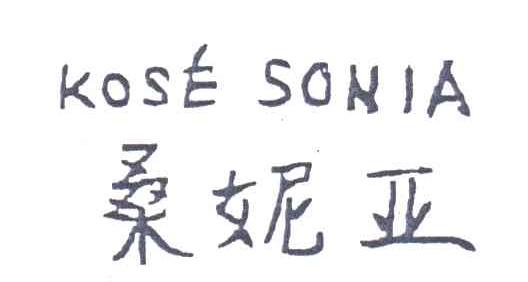 KOSÉ SONIA
桑妮亚